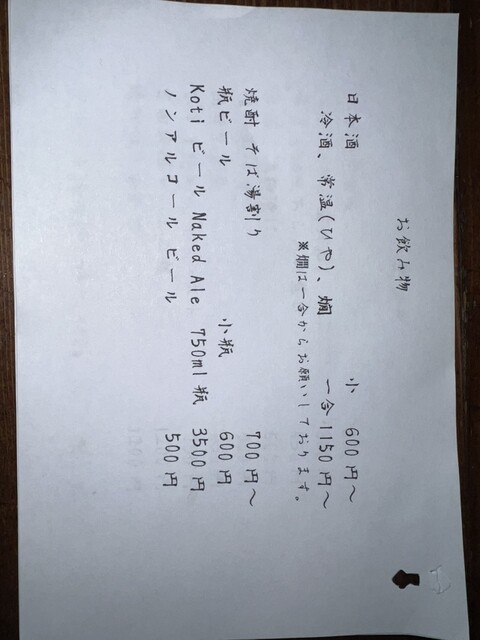 お飲み物
日本酒 小 600円〜
冷酒、常温(ひや)、燗 一合 1150円〜
※燗は一合からお願いしております。
焼酎 そば湯割り 700円〜
瓶ビール 小瓶 600円
Koti ビール Naked Ale 750ml瓶 3500円
ノンアルコール ビール 500円